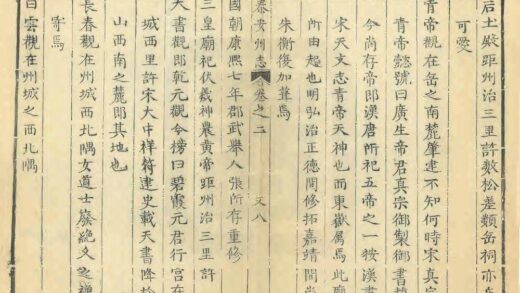 后土殿距州治三里許數松差類岳祠亦
可愛
青帝觀在岳之南麓肇建不知何時宋真宗
青帝懿號曰廣生帝君真宗御製御書
今尚存帝即漢唐所祀五帝之一按漢書
宋天文志青帝天神也而東嶽屬焉此廟
所由起也明弘治正德間修拓嘉靖間尚
朱衡復加葺焉
泰安州志 卷之二 又八
國朝康熙七年郡武舉人張所存重修
三皇廟祀伏羲神農黃帝距州治三里許
天書觀即乾元觀令榜曰碧霞元君行宮在
城西里許宋大中祥符建史載天書降於
山西南之麓即其地也
長春觀在州城西北隅女道士廢絕久之禪
寄焉
白雲觀在州城之西北隅